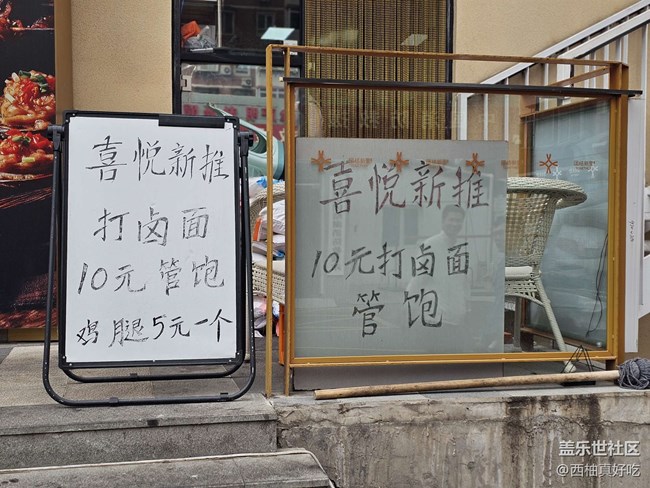 喜悦新推
打卤面
10元管饱
鸡腿5元一个
喜悦新推
10元打卤面
管饱
盖乐世社区
@西柚真好吃